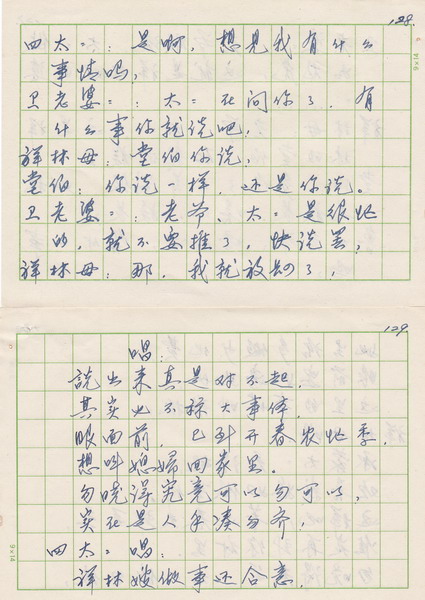 128.
四太=：是啊，想见我有什么
事情吗，
卫老婆=：太=在问你了，有
什么事你就说吧，
祥林母：堂伯你说，
堂伯：你说一样，还是你说。
卫老婆=：老爷、太=是很忙
的，就不要推了，快说罢，
祥林母：那，我就放肆了，
9×14
129.
唱：
說出来真是对不起，
其实也不称大事体，
眼面前，已到开春农忙季，
想叫媳婦回家里。
勿晓得究竟可以勿可以，
实在是人手凑勿齐，
四太=唱：
祥林嫂做事还合意，
9×14